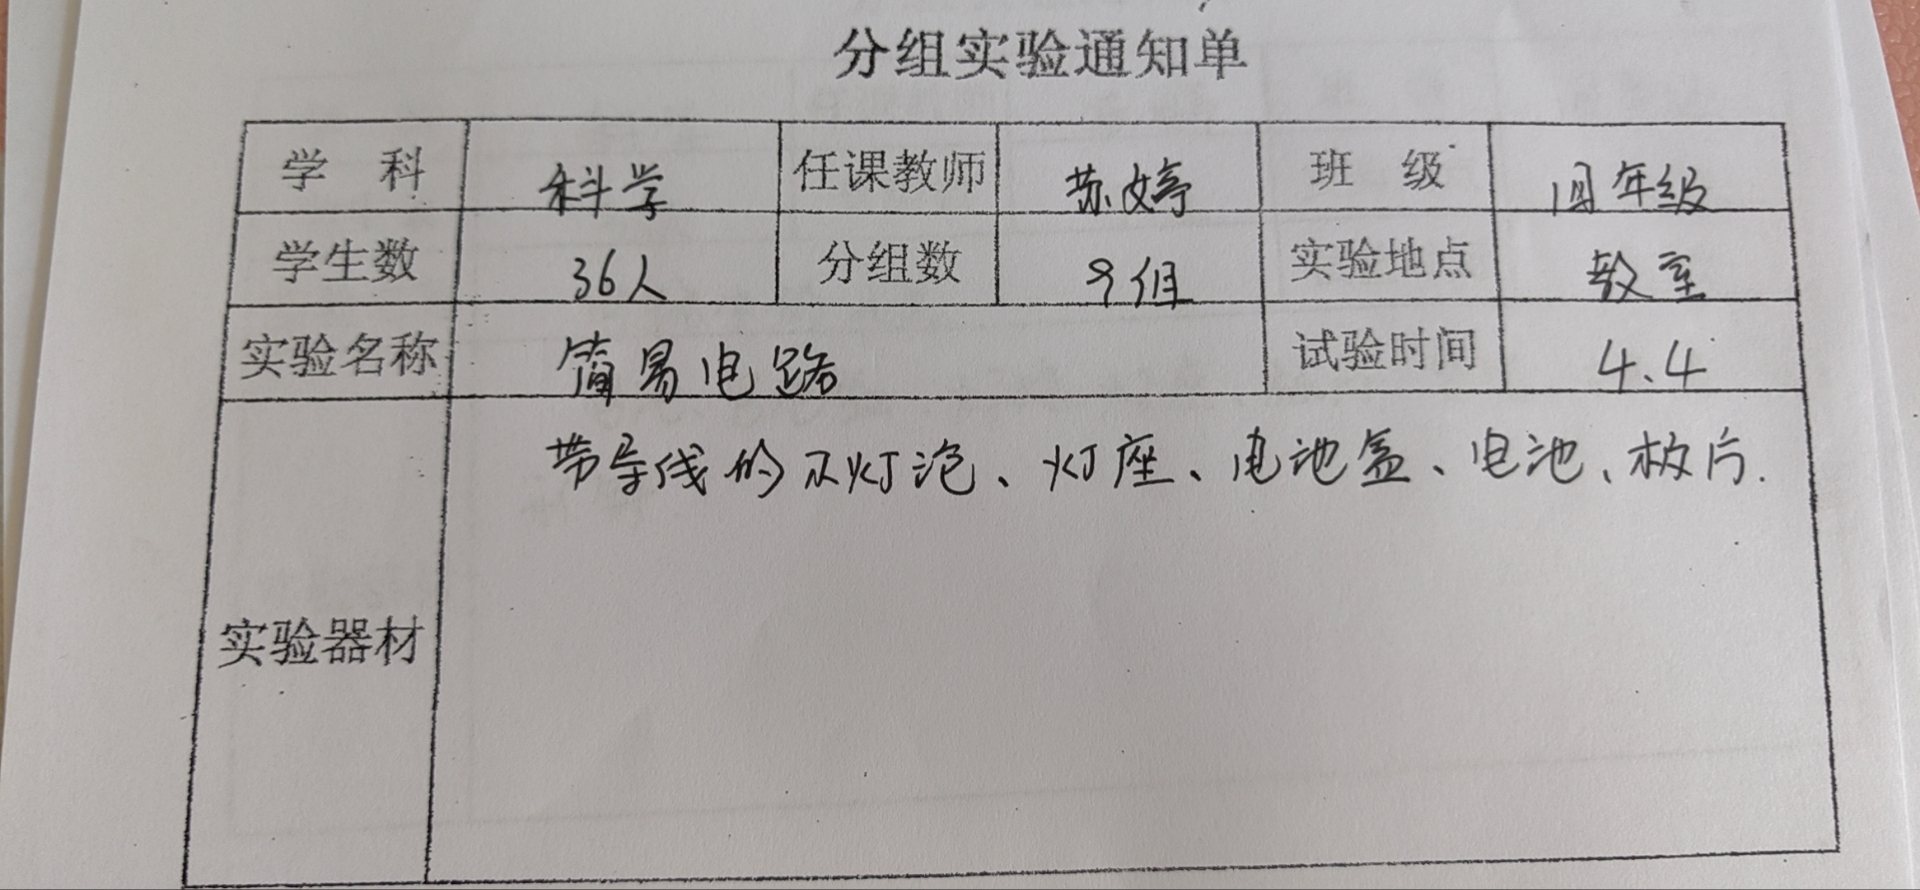 分组实验通知单
学 科 科学 任课教师 苏婷 班 级 四年级
学生数 36人 分组数 9组 实验地点 教室
实验名称 简易电路 试验时间 4.4
实验器材 带导线的小灯泡、灯座、电池盒、电池、极片.